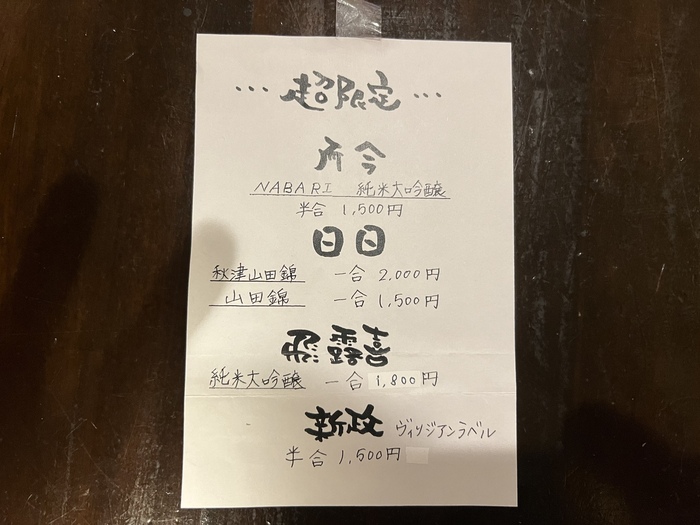 …超限定…
而今
NABARI 純米大吟醸
半合 1,500円
日日
秋津山田錦 一合 2,000円
山田錦 一合 1,500円
飛露喜
純米大吟醸 一合 1,800円
新政 ヴィリジアンラベル
半合 1,500円